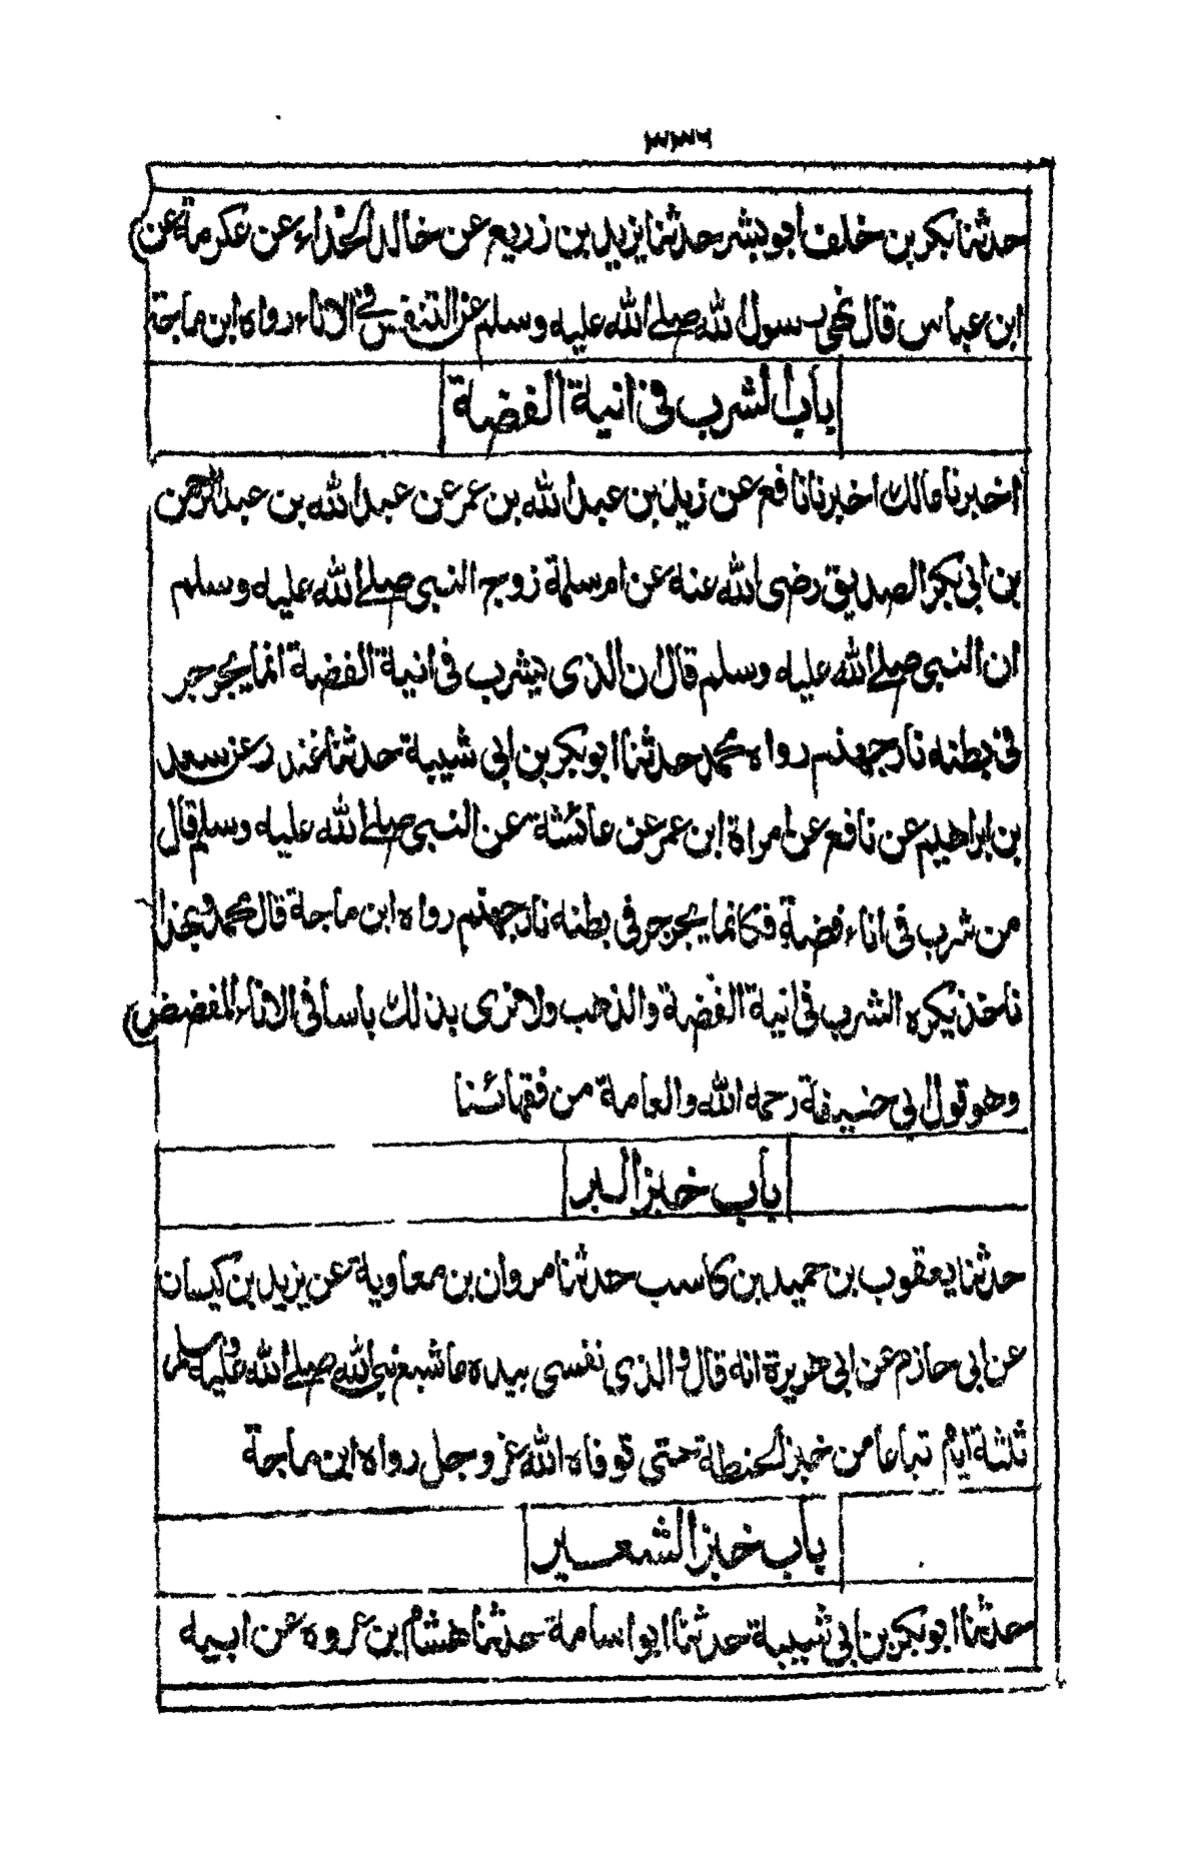 ٣٣٦
حدثنا بكر بن خلف ابو بشر حدثنا يزيد بن زريع عن خالد الحذاء عن عكرمة عن
ابن عباس قال نهى رسول الله صلے الله عليه وسلم عن التنفس فى الاناء رواه ابن ماجة
باب الشرب فى انية الفضة
اخبرنا مالك اخبرنا نافع عن زيد بن عبد الله بن عمر عن عبد الله بن عبد الرحمن
بن ابى بكر الصديق رضى الله عنه عن ام سلمة زوج النبى صلے الله عليه وسلم
ان النبى صلے الله عليه وسلم قال ن الذى يشرب فى انية الفضة انما يجرجر
فى بطنه نار جهنم رواه محمد حدثنا ابو بكر بن ابى شيبة حدثنا غندر عن سعد
بن ابراهيم عن نافع عن امراة ابن عمر عن عائشة عن النبى صلے الله عليه وسلم قال
من شرب فى اناء فضة فكانما يجرجر فى بطنه نار جهنم رواه ابن ماجة قال محمد وبهذا
ناخذ يكره الشرب فى انية الفضة والذهب ولا نرى بذلك باسا فى الاناء المفضض
وهو قول ابى حنيفة رحمه الله والعامة من فقهائنا
باب خبز البر
حدثنا يعقوب بن حميد بن كاسب حدثنا مروان بن معاوية عن يزيد بن كيسان
عن ابى حازم عن ابى هريرة انه قال والذى نفسى بيده ما شبع نبى الله صلے الله عليه وسلم
ثلثة ايام تباعا من خبز الحنطة حتى توفاه الله عز وجل رواه ابن ماجة
باب خبز الشعير
حدثنا ابو بكر بن ابى شيبة حدثنا ابو اسامة حدثنا هشام ابن عروه عن ابيه